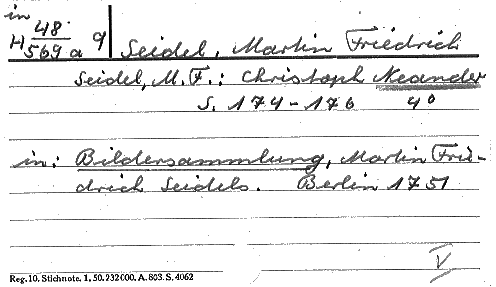 in
H 48/569 a q Seidel, Martin Friedrich
Seidel, M. F.: Christoph Neander
S. 174-176 4°
in: Bildersammlung, Martin Frie-
drich Seidels. Berlin 1751
V
Reg. 10. Stichnote. 1, 50. 232000. A. 803. S. 4062